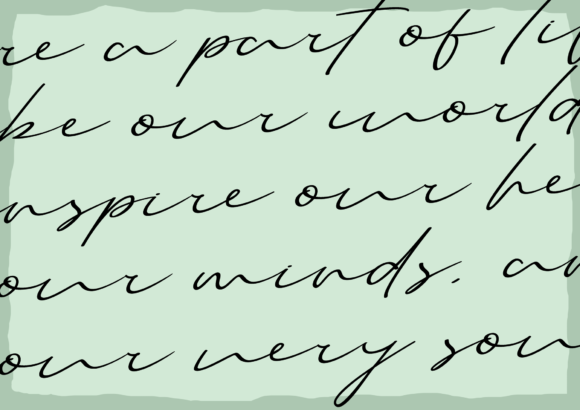 re a part of lif
be our world
nspire our he
our minds. an
our very sou